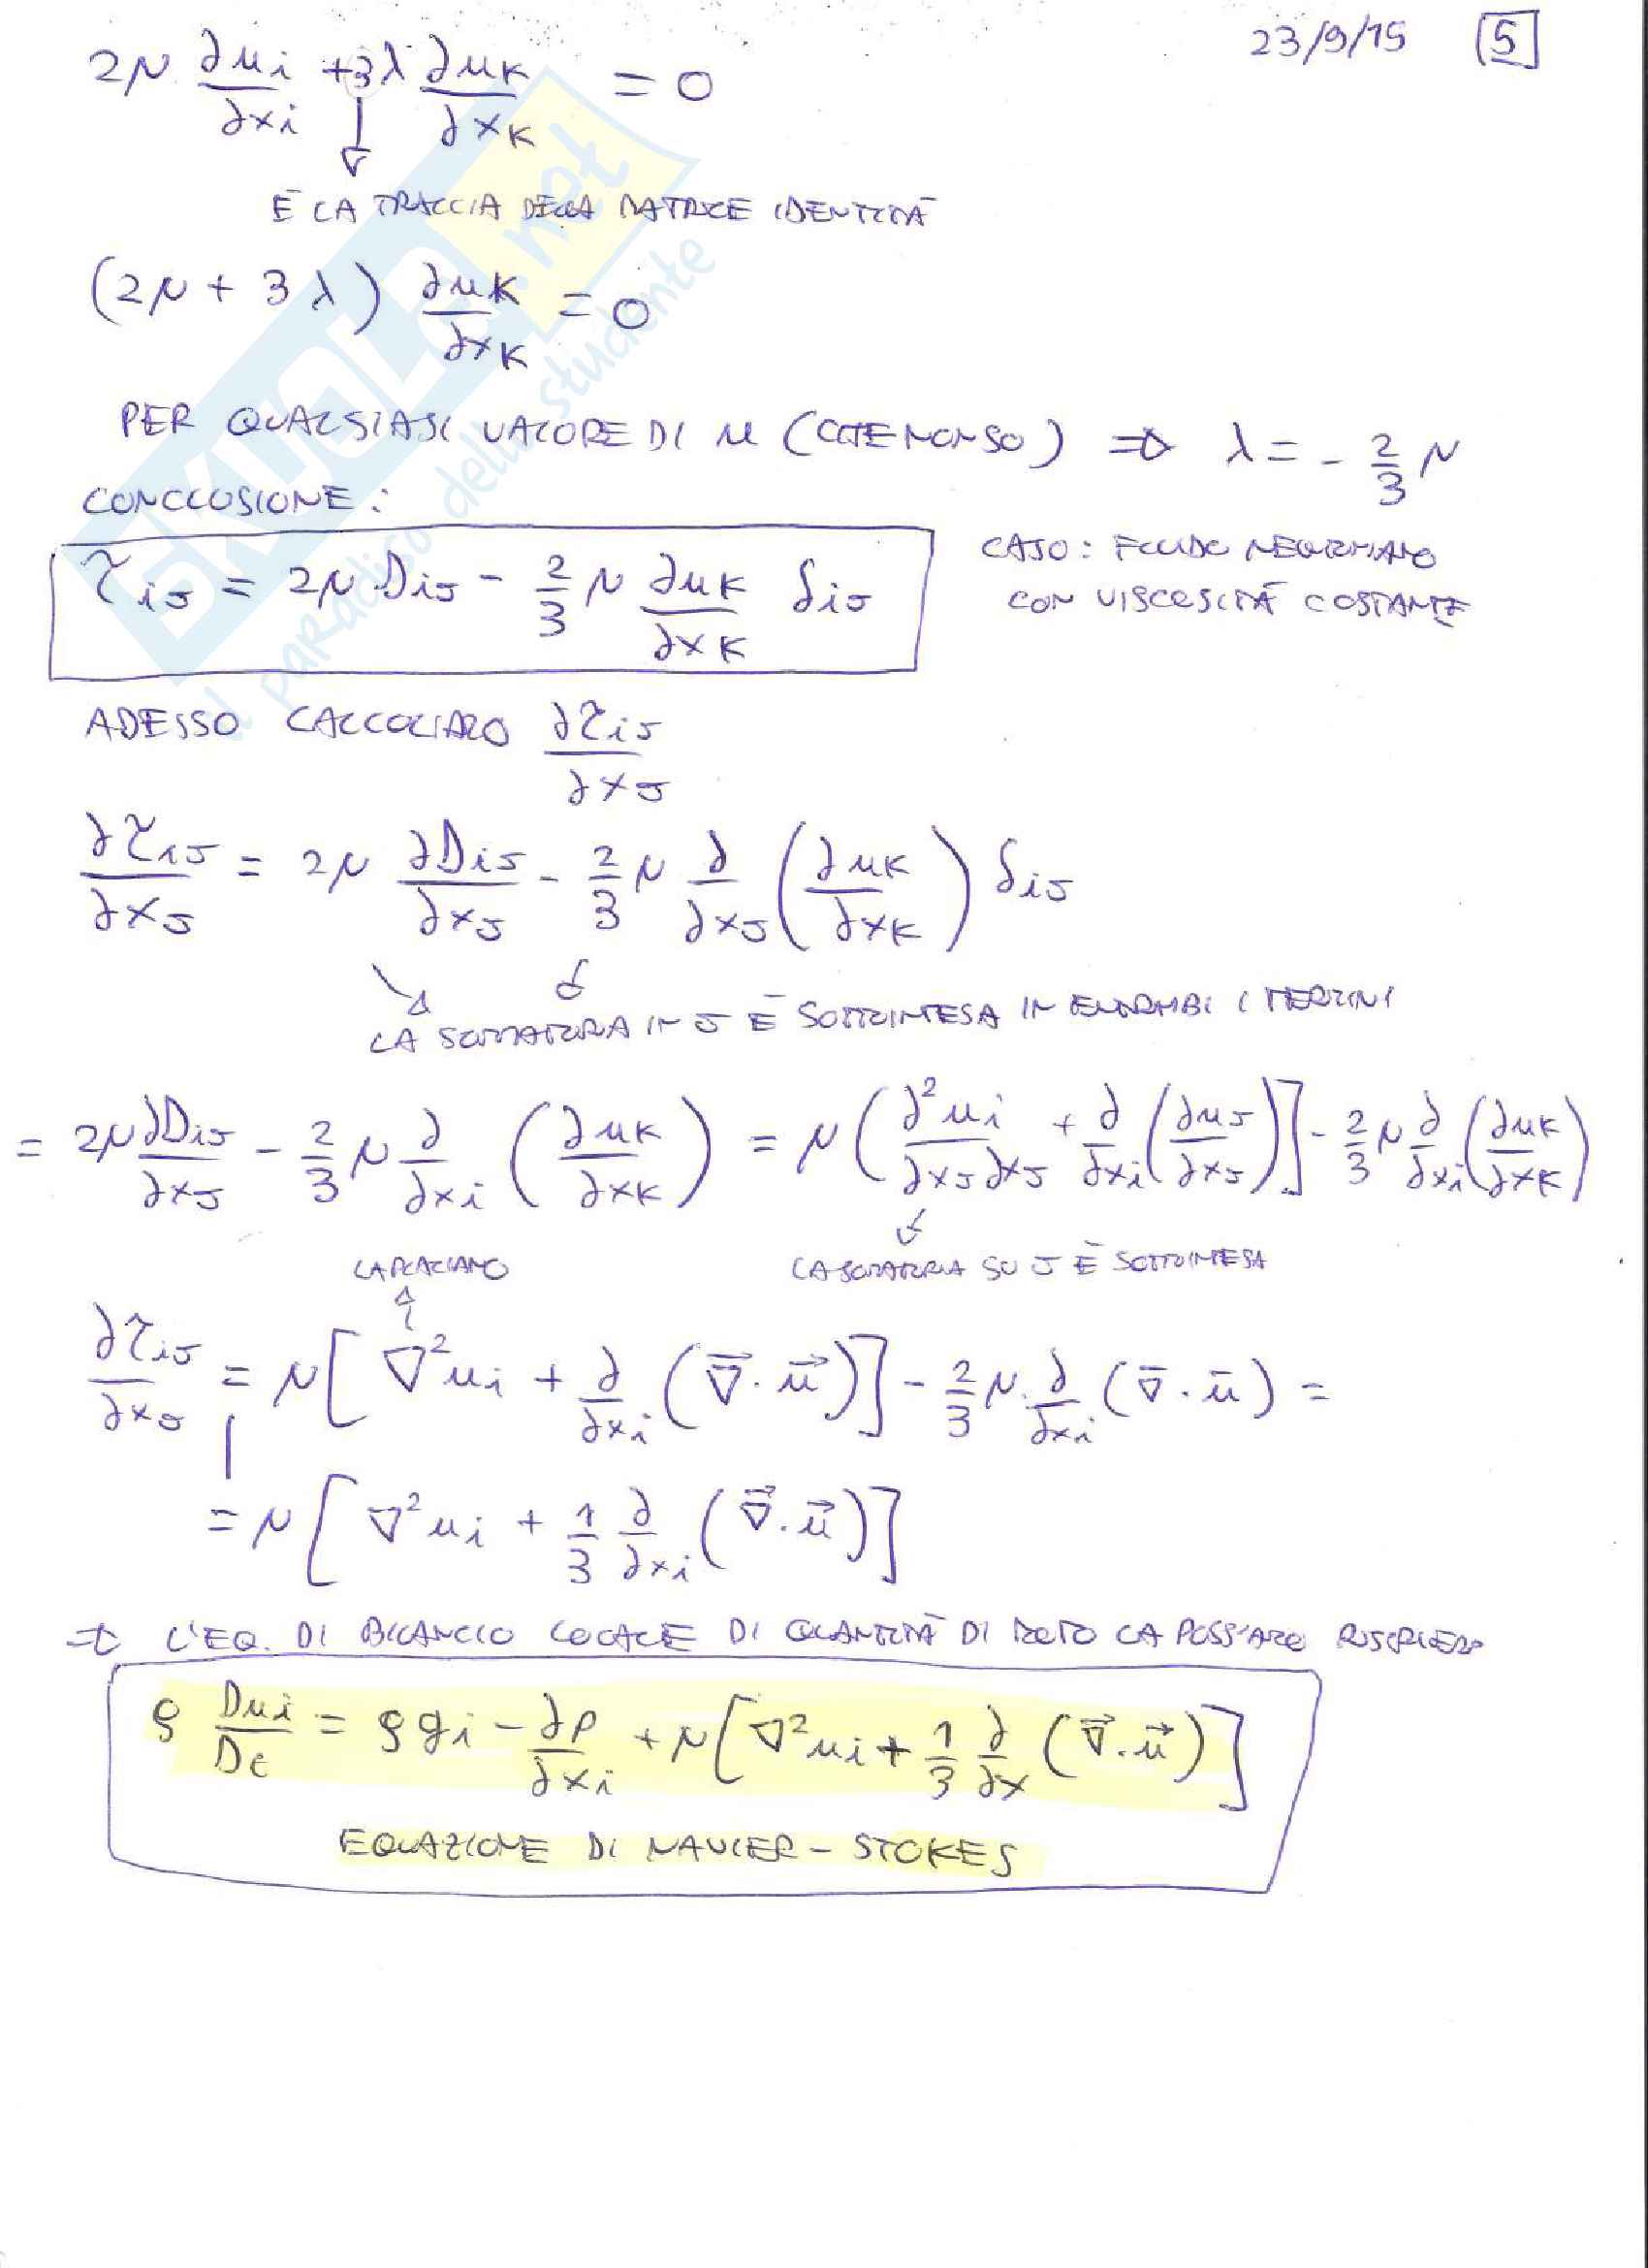 23/9/15 5
2μ ∂ui/∂xi + 3λ ∂uk/∂xk = 0
È LA TRACCIA DELLA MATRICE IDENTITÀ
(2μ + 3λ) ∂uk/∂xk = 0
PER QUALSIASI VALORE DI u (CHE NON SO) ⇒ λ = - 2/3 μ
CONCLUSIONE:
τij = 2μ Dij - 2/3 μ ∂uk/∂xk δij
CASO: FLUIDO NEWTONIANO
CON VISCOSITÀ COSTANTE
ADESSO CALCOLIAMO ∂τij/∂xj
∂τij/∂xj = 2μ ∂Dij/∂xj - 2/3 μ ∂/∂xj (∂uk/∂xk) δij
LA SOMMATORIA IN J È SOTTOINTESA IN ENTRAMBI I TERMINI
= 2μ ∂Dij/∂xj - 2/3 μ ∂/∂xi (∂uk/∂xk) = μ (∂²ui/∂xj∂xj + ∂/∂xi (∂uj/∂xj)] - 2/3 μ ∂/∂xi (∂uk/∂xk)
LAPLACIANO
LA SOMMATORIA SU J È SOTTOINTESA
∂τij/∂xj = μ [∇²ui + ∂/∂xi (∇⃗·u⃗)] - 2/3 μ ∂/∂xi (∇̄·ū) =
= μ [∇²ui + 1/3 ∂/∂xi (∇⃗·u⃗)]
⇒ L'EQ. DI BILANCIO LOCALE DI QUANTITÀ DI MOTO LA POSSIAMO RISCRIVERE
ρ Dui/Dt = ρgi - ∂p/∂xi + μ [∇²ui + 1/3 ∂/∂x (∇⃗·u⃗)]
EQUAZIONE DI NAVIER - STOKES
SKUOLA.net
il paradiso dello studente